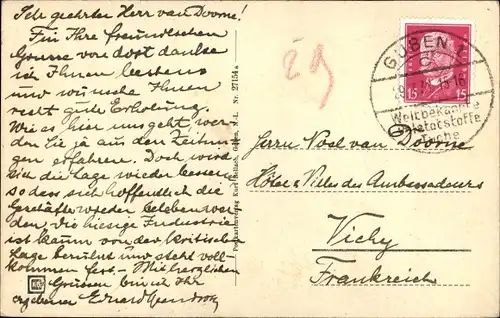 Sehr geehrter Herr van Doorne!
Für Ihre freundlichen
Grüsse von dort danke
ich Ihnen bestens
und wünsche Ihnen
recht gute Erholung.
Wie es hier um geht, wer
den Sie ja aus den Zeitun
gen erfahren. Doch wird
sich die Lage wieder bessern
so dass sich hoffentlich die
Geschäfte wieder beleben wer
den, die hiesige Industrie
ist kaum von der kritischen
Lage berührt und steht voll
kommen fest. - Mit herzlichen
Grüssen bin ich Ihr
ergebener Eduard
29
GUBEN
15 15
Weltbekannte
Tuche
Herrn van Doorne
Hôtel & Villas des Ambassadeurs
Vichy
Frankreich
Nr. 27154